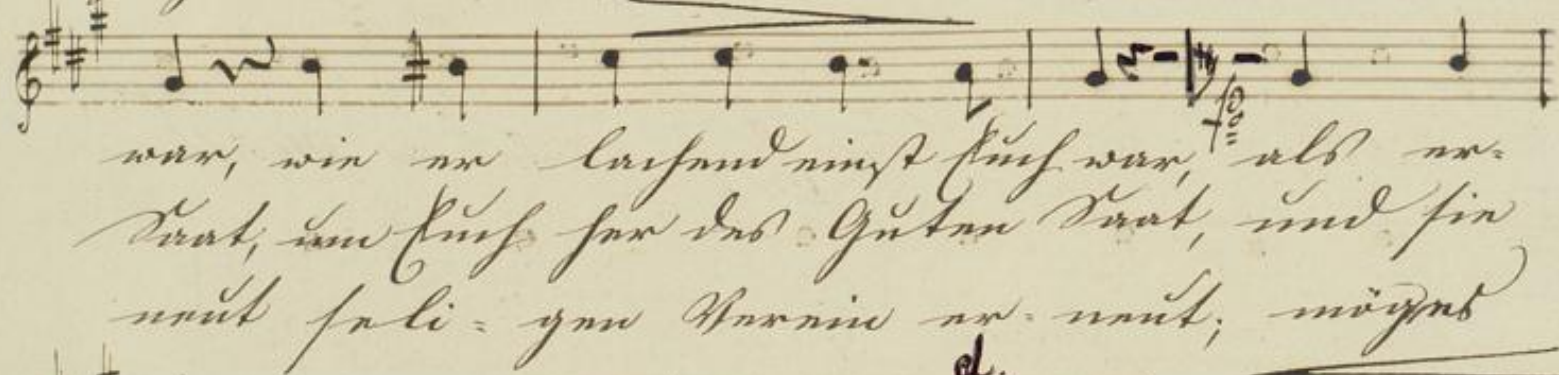 war, wie er lachend einst Euch war, als er-
Saat, um Euch her des Guten Saat, und sie
neut seli- gen Verein er- neut; mög es